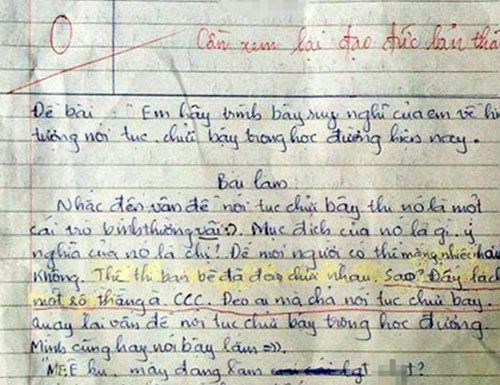 0
Cần xem lại đạo đức bản thâ
Đề bài: "Em hãy trình bày suy nghĩ của em về hi
tượng nói tục, chửi bậy trong học đường hiện nay.
Bài làm
Nhắc đến vấn đề nói tục chửi bậy thì nó là một
cái trò bình thường vãi :). Mục đích của nó là gì, ý
nghĩa của nó là chi! Để mọi người có thể mắng nhiếc
Không. Thế thì bạn bè đã đéo chửi nhau. Sao? Đấy là
một số thằng a. CCC. Đéo ai mà chả nói tục chửi bậy.
Quay lại vấn đề nói tục chửi bậy trong học đường.
Mình cũng hay nói bậy lắm =)).
"MẸ ku, mày đang làm